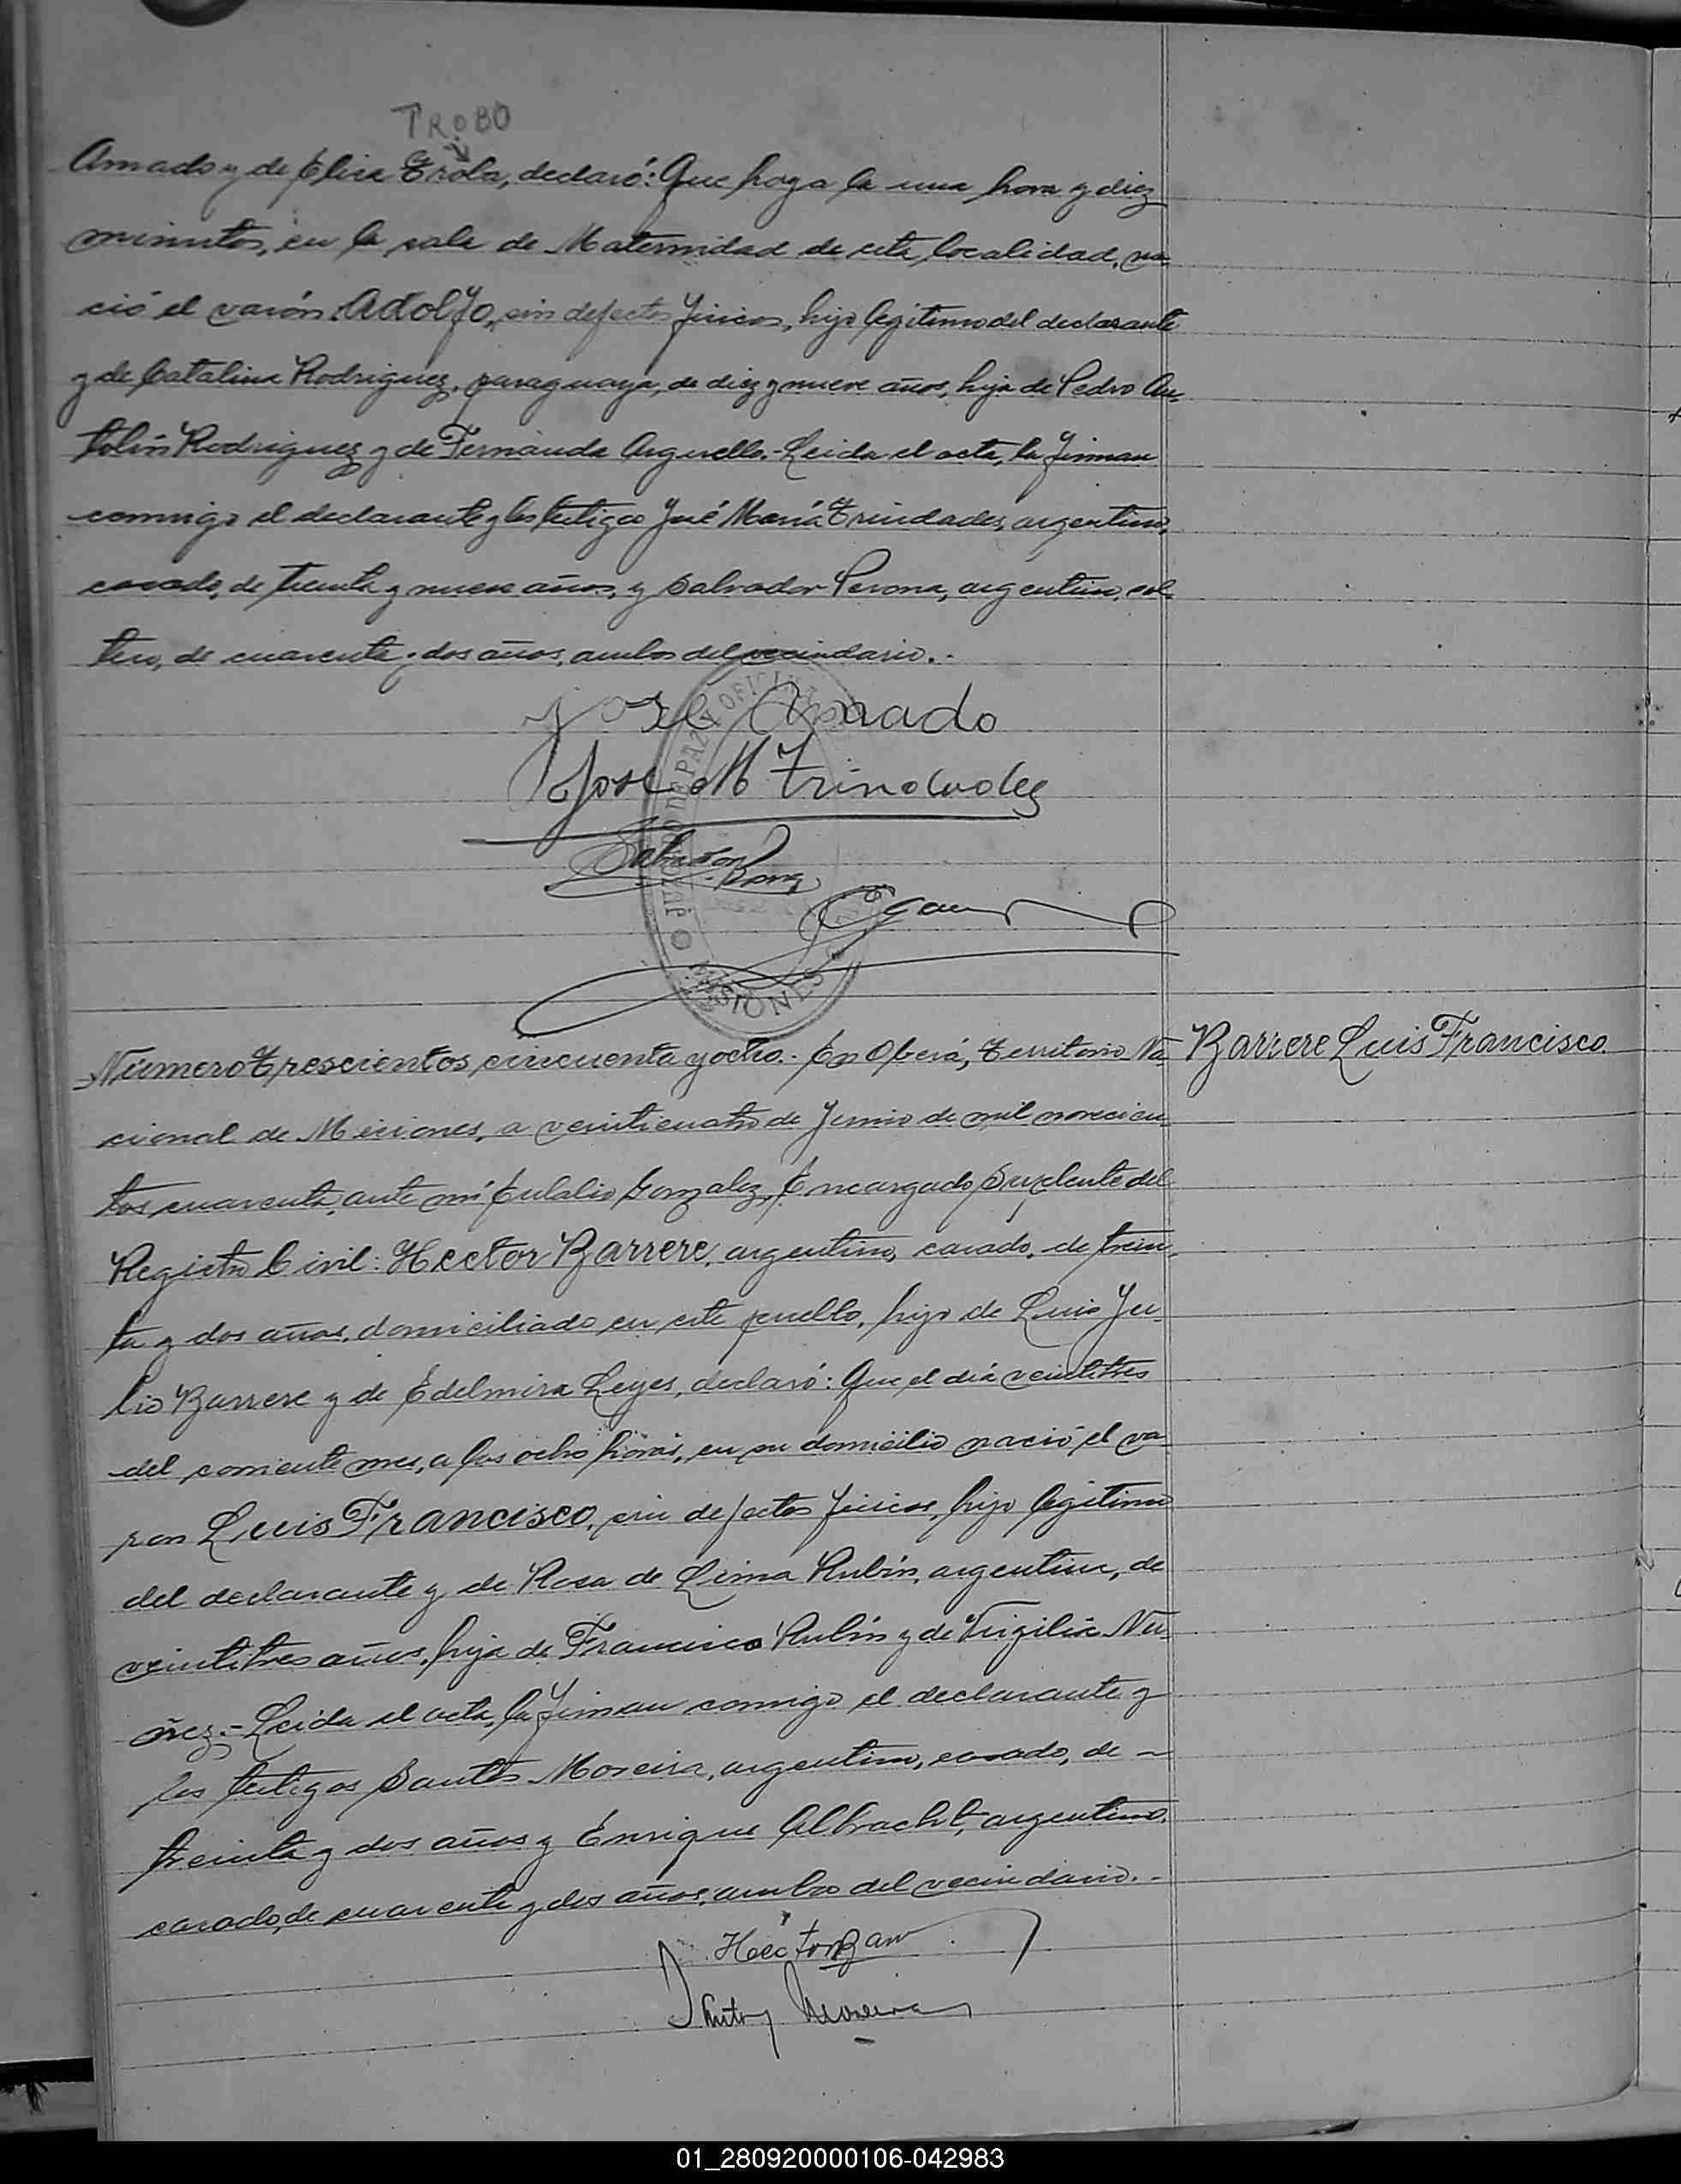 TROBO
Amado y de Elisa Troba, declaró: Que hoy a la una hora y diez
minutos, en la sala de Maternidad de esta localidad, na-
ció el varón Adolfo, sin defectos fisicos, hijo legitimo del declarante
y de Catalina Rodriguez, paraguaya, de diez y nueve años, hija de Pedro An-
tolin Rodriguez y de Fernanda Arguello.- Leida el acta, la firman
conmigo el declarante y los testigos José María Trindades, argentino,
casado, de treinta y nueve años, y Salvador Perona, argentino, sol-
tero, de cuarenta y dos años, ambos del vecindario.-
José Amado
Jose M Trindades
Salvador
JUZGADO DE PAZ OFICINA
MISIONES
Número Trescientos cincuenta y ocho.- En Oberá, Territorio Na-
Barrere Luis Francisco.
cional de Misiones, a veinticuatro de Junio de mil novecien-
tos cuarenta, ante mí Eulalio Gonzalez, Encargado Suplente del
Registro Civil: Hector Barrere, argentino, casado, de trein-
ta y dos años, domiciliado en este pueblo, hijo de Luis Ju-
lio Barrere y de Edelmira Leyes, declaró: Que el día veintitres
del corriente mes, a las ocho horas, en su domicilio nació el va-
ron Luis Francisco, sin defectos fisicos, hijo legitimo
del declarante y de Rosa de Lima Rubín, argentina, de
veintitres años, hija de Francisco Rubín y de Virgilia Nu-
ñez.- Leida el acta, la firman conmigo el declarante y
los testigos Santos Moreira, argentino, casado, de -
treinta y dos años y Enrique Albracht, argentino,
casado, de cuarenta y dos años, ambos del vecindario.-
Hector Barr
Santos Moreira
01_280920000106-042983